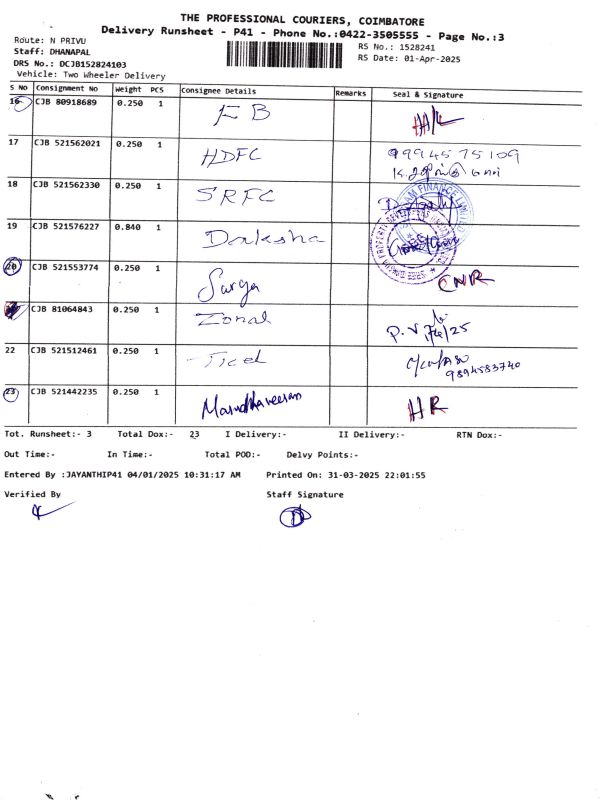 THE PROFESSIONAL COURIERS, COIMBATORE
Delivery Runsheet - P41 - Phone No.:0422-3505555 - Page No.:3
Route: N PRIVU
Staff: DHANAPAL
DRS No.: DCJB152824103
Vehicle: Two Wheeler Delivery
RS No.: 1528241
RS Date: 01-Apr-2025
S No Consignment No Weight PCS Consignee Details Remarks Seal & Signature
16 CJB 80918689 0.250 1 FB
17 CJB 521562021 0.250 1 HDFC 9994575109
18 CJB 521562330 0.250 1 SRFC
19 CJB 521576227 0.840 1 Daksha
20 CJB 521553774 0.250 1 Surya CNR
CJB 81064843 0.250 1 Zonal P.V
22 CJB 521512461 0.250 1 Ticel 9894583740
23 CJB 521442235 0.250 1 Marudhaveeran HR
Tot. Runsheet:- 3 Total Dox:- 23 I Delivery:- II Delivery:- RTN Dox:-
Out Time:- In Time:- Total POD:- Delvy Points:-
Entered By :JAYANTHIP41 04/01/2025 10:31:17 AM Printed On: 31-03-2025 22:01:55
Verified By Staff Signature